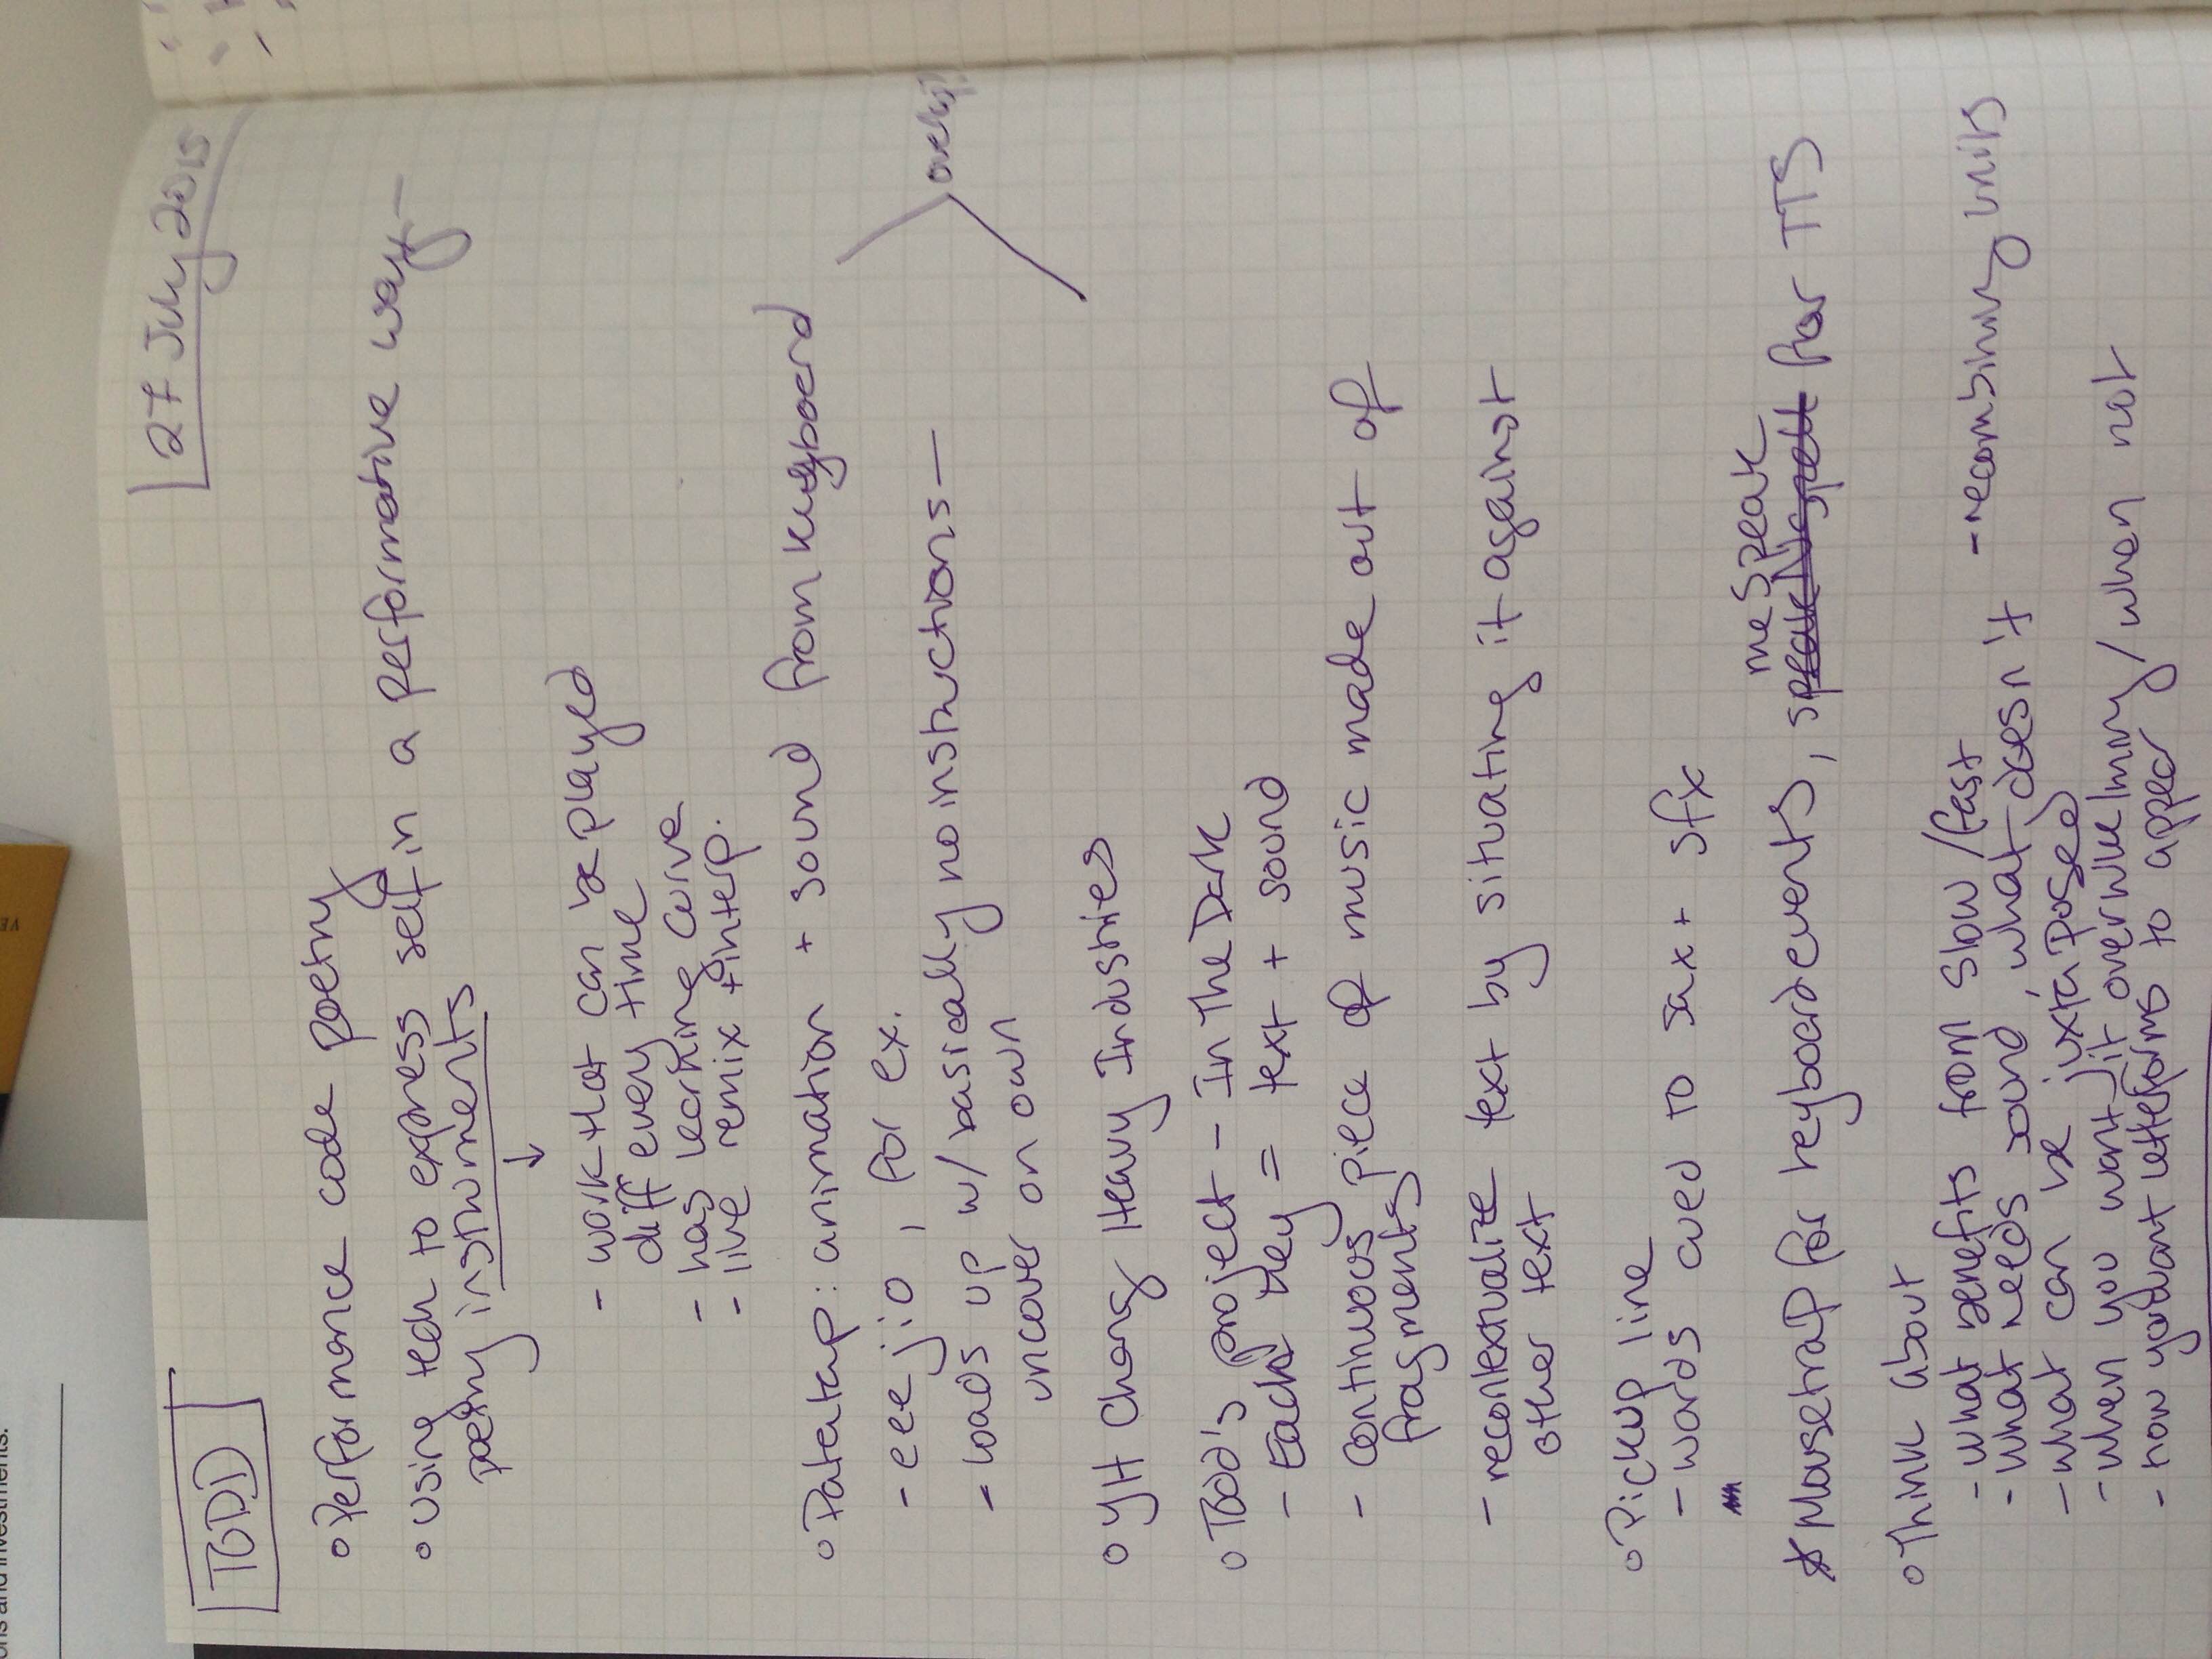 ons and investments.
VE
27 July 2015
TODD
○ Performance code poetry
○ Using tech to express self in a performative way —
poetry instruments
↓
- work that can be played
diff every time
- has learning curve
- like remix + interp.
○ Patatap: animation + sound from keyboard
- eeejio, for ex.
- loads up w/ basically no instructions —
uncover on own
overlap?
○ YH Chang Heavy Industries
○ Todd's project - In The Dark
- Each key = text + sound
- continuous piece of music made out of
fragments
- recontextualize text by situating it against
other text
○ Pickup line
- words cued to sax + sfx
meSpeak
* Mousetrap for keyboard events, speakNspell for TTS
○ Think about
- what benefits from slow/fast
- recombining units
- what needs sound, what doesn't
- what can be juxtaposed
- when you want it overwhelming / when not
- how you want letterforms to appear